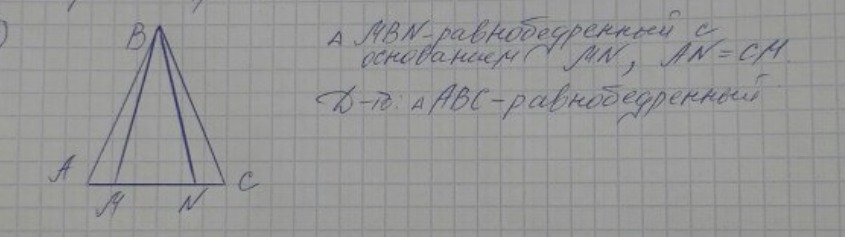 )
B
A
M
N
C
△ MBN-равнобедренный с
основанием MN, AN=CM.
Д-ть: △ABC-равнобедренный